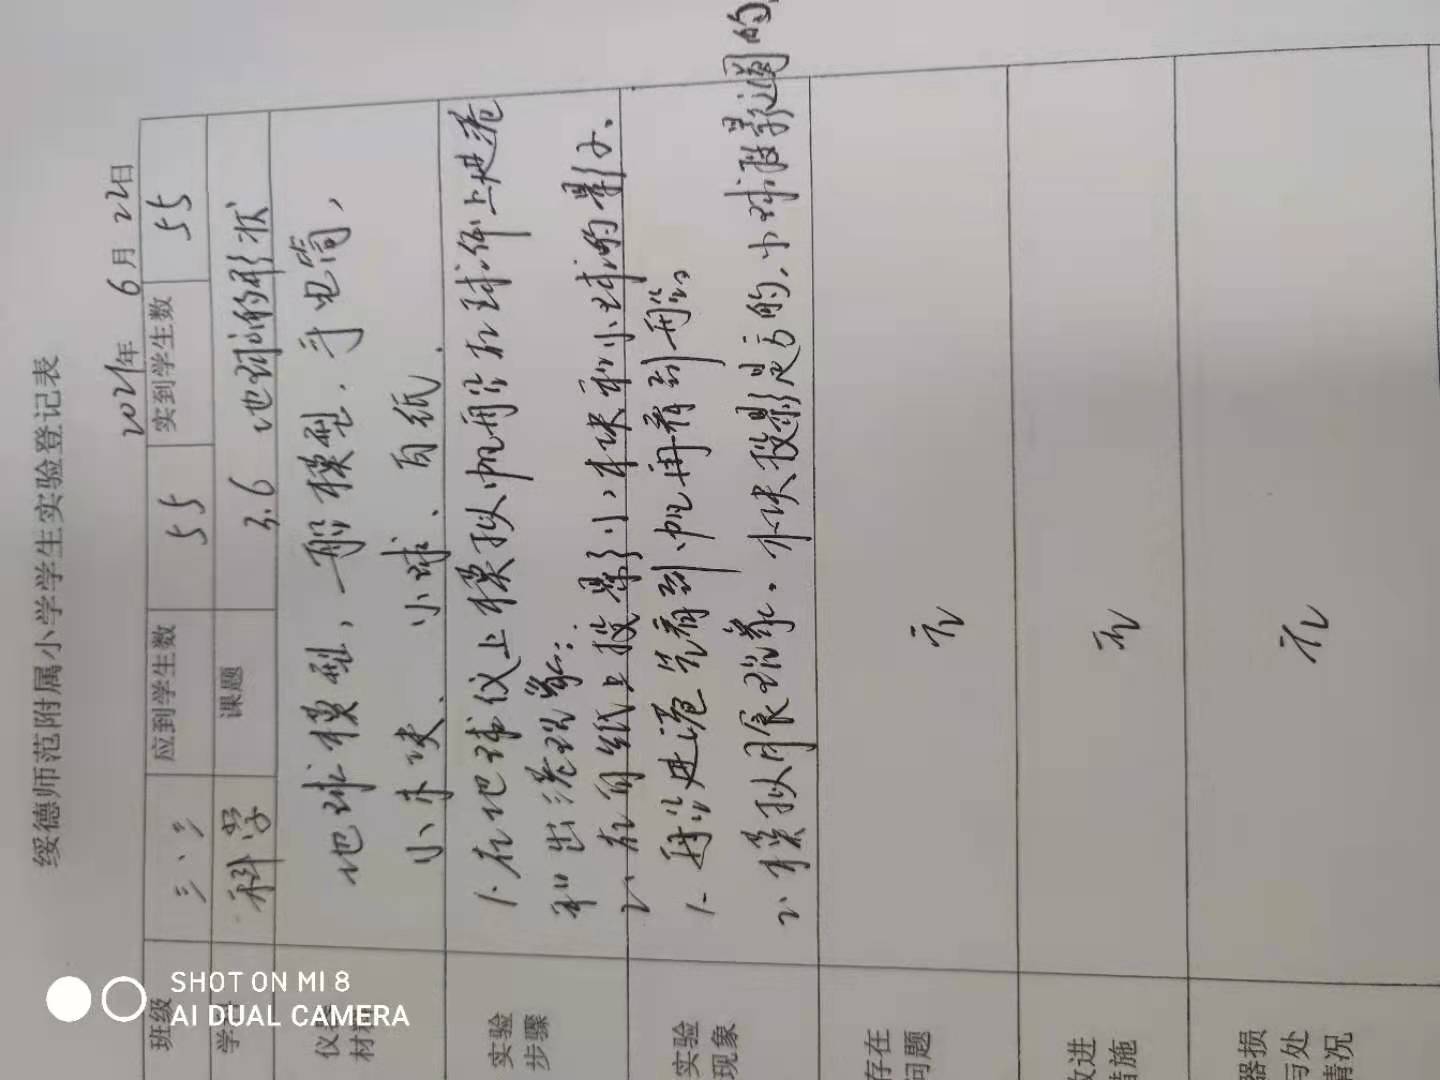 绥德师范附属小学学生实验登记表
2021年 6月 22日
班级 三、3 应到学生数 55 实到学生数 55
科学 课题 3.6 地球的形状
仪器 地球模型, 一船模型、手电筒,
材 小木块、小球、白纸.
实验 1.在地球仪上模拟帆船在球体上进港
步骤 和出港现象;
2、在白纸上投影小木块和小球的影子、
实验 1. 船进港先看到帆再看到船。
现象 2、模拟月食现象. 木块投影是方的、小球投影是圆的
存在
问题 无
改进
措施 无
器损
与处 无
情况
SHOT ON MI 8
AI DUAL CAMERA